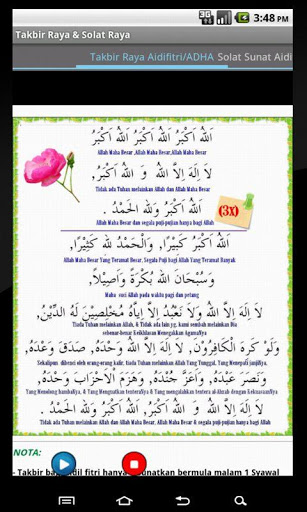 3G 3:48 PM
Takbir Raya & Solat Raya
Takbir Raya Aidifitri/ADHA Solat Sunat Aidi
اَللهُ اَكْبَرُ اَللهُ اَكْبَرُ اَللهُ اَكْبَرُ
Allah Maha Besar ,Allah Maha Besar,Allah Maha Besar
لاَ إِلَهَ إِلاَّ اللهُ وَ اللهُ اَكْبَرُ,
Tidak ada Tuhan melainkan Allah dan Allah Maha Besar
اَللهُ اَكْبَرُ وَللهِ الْحَمْدُ . (3x)
Allah Maha Besar dan segala puji-pujian hanya bagi Allah
اَللهُ اَكْبَرُ كَبِيْرًا, وَالْحَمْدُ للهِ كَثِيْرًا,
Allah Maha Besar Yang Teramat Besar, Segala Puji bagi Allah Yang Teramat Banyak
وَسُبْحَانَ اللهِ بُكْرَةً وَاَصِيْلاً,
Maha suci Allah pada waktu pagi dan petang
لاَ إِلَهَ إِلاَّ اللهُ وَلاَ نَعْبُدُ إِلاَّ إِيَّاهُ مُخْلِصِيْنَ لَهُ الدِّيْنَ,
Tiada Tuhan melainkan Allah, & Tidak ada lain yg kami sembah melainkan Dia
sebenar-benar Keikhlasan Menegakkan AgamaNya
وَلَوْ كَرِهَ الْكَافِرُوْنَ, لاَ إِلَهَ إِلاَّ اللهُ وَحْدَهُ, صَدَقَ وَعْدَهُ,
Sekalipun dibenci oleh orang-orang kafir, tiada Tuhan melainkan Allah Yang Tunggal, Yang Menepati janjiNya,
وَنَصَرَ عَبْدَهُ, وَاَعَزَّ جُنْدَهُ, وَهَزَمَ الْاَحْزَابَ وَحْدَهُ,
Yang Menolong hambaNya, & Yang Menguatkan tenteraNya & Yang mengalahkan tentera al-Ahzab dengan KekuasaanNya
لاَ إِلَهَ إِلاَّ اللهُ وَ اللهُ اَكْبَرُ, اَللهُ اَكْبَرُ وَللهِ الْحَمْدُ .
Tidak ada Tuhan melainkan Allah dan Allah Maha Besar, Allah Maha Besar & segala puji-pujian hanya bagi Allah
NOTA:
- Takbir ba dil fitri hanya unatkan bermula malam 1 Syawal